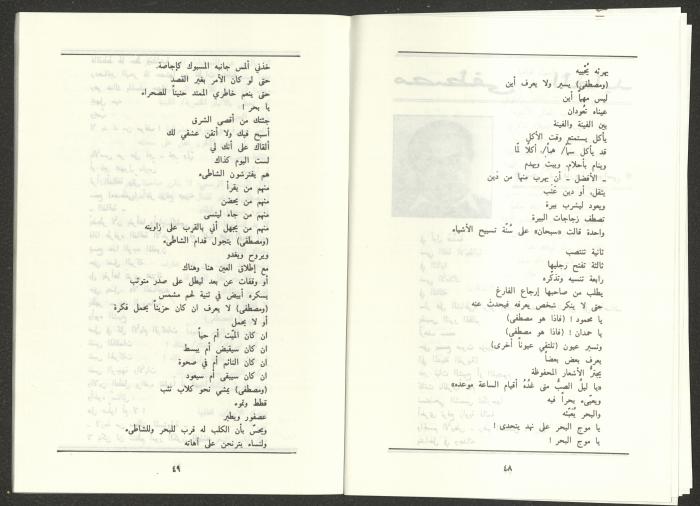 يهرته يُحْييه
(ومصطفى) يسير ولا يعرف أين
ليس مهماً أين
عيناه تعُودان
بين الفينة والفينة
يأكل يستمتع وقت الأكل
قد يأكل سبّاً/ هماً/ أكلاً لمّا
وينام بأحلام، ويبت ويهدم
ـ الأفضل ـ أن يهرب منها من دَين
يثقل، أو دين عَتَب
ويعود ليشرب بيرة
تصطف زجاجات البيرة
واحدة قالت «سبحان» على سُنّة تسبيح الأشياء
ثانية تنتصب
ثالثة تفتح رجليها
رابعة تنسيه وتذكّره
يطلب من صاحبها إرجاع الفارغ
حتى لا ينكر شخص يعرفه فيحدث عنه
يا محمود ! (فاذا هو مصطفى)
يا حمدان ! (فاذا هو مصطفى)
وتسير عيون (تلتقي عيوناً أخرى)
يعرف بعض بعضاً
يجترّ الأشعار المحفوظة
«يا ليلُ الصبُّ متى غَدُهُ أقيام الساعة موعده»
ويعبّىء بحراً فيه
والبحر يُعبّئه
يا موج البحر على نهد يتحدى !
يا موج البحر !
٤٨
خذني ألمس جانبه المسبوك كإجاصة.
حتى لو كان الأمر بغير القصد
حتى ينعم خاطري الممتد حنيناً للصحراء
يا بحر !
جئتك من أقصى الشرق
أسبح فيك ولا أتقن عشقي لك
ألقاك على أنك لي
لست اليوم كذاك
هم يفترشون الشاطىء
منهم من يقرأ
منهم من يحضن
منهم من جاء لينسى
منهم من يجهل أني بالقرب على زاويته
(ومصطفى) يتجول قدام الشاطىء
ويروح ويغدو
مع إطلاق العين هنا وهناك
أو وقفات عن بعد ليطل على صدر متوثب
يسكره أبيض في ثنية لحم مشمس
(ومصطفى) لا يعرف ان كان حزيناً يحمل فكرة
أو لا يحمل
ان كان الميّت أم حياً
ان كان سيقبض أم يبسط
ان كان النائم أم في صحوة
ان كان سيبقى أم سيعود
(ومصطفى) يمشي نحو كلاب تثب
قطط وتموء
عصفور ويطير
ويحسّ بأن الكلب له قرب للبحر وللشاطىء
ولنساء يترنحن على أهاته
٤٩